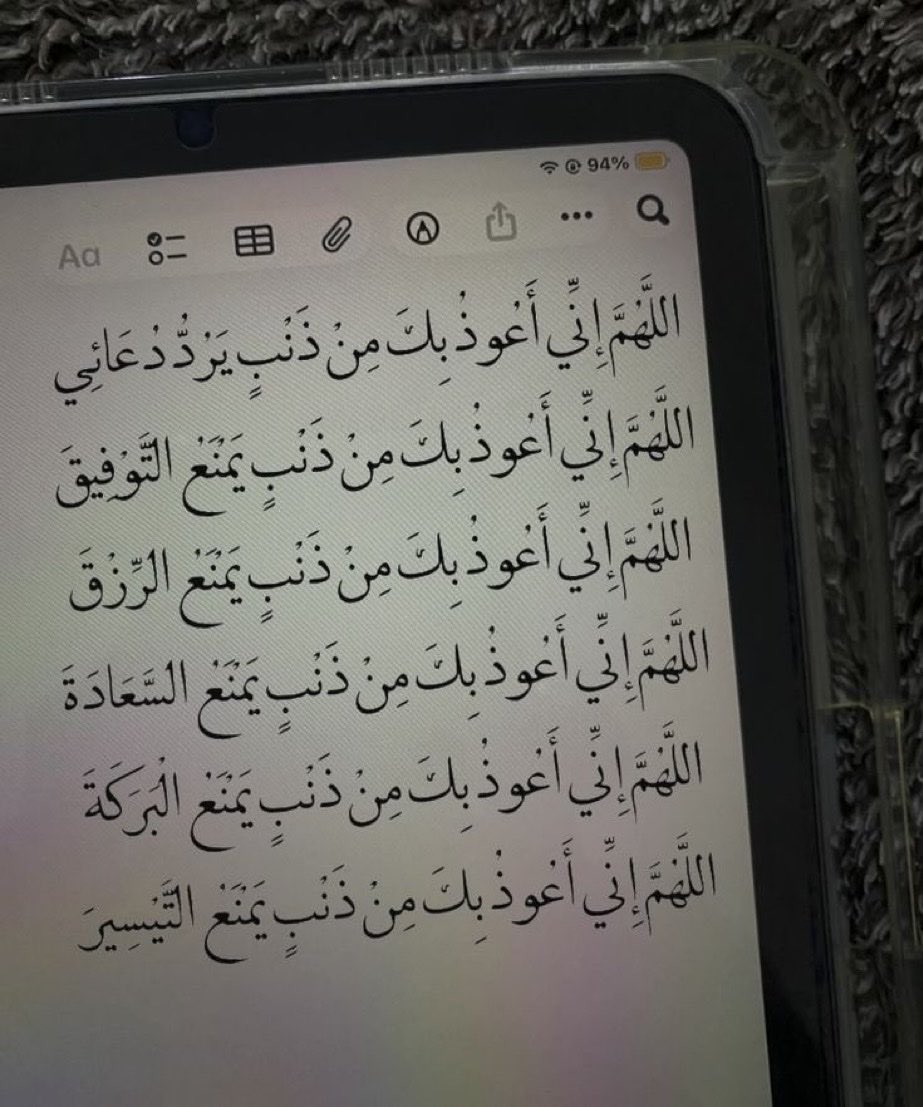 94%
Aa
اللَّهُمَّ إِنِّي أَعُوذُ بِكَ مِنْ ذَنْبٍ يَرُدُّ دُعَائِي
اللَّهُمَّ إِنِّي أَعُوذُ بِكَ مِنْ ذَنْبٍ يَمْنَعُ التَّوْفِيقَ
اللَّهُمَّ إِنِّي أَعُوذُ بِكَ مِنْ ذَنْبٍ يَمْنَعُ الرِّزْقَ
اللَّهُمَّ إِنِّي أَعُوذُ بِكَ مِنْ ذَنْبٍ يَمْنَعُ السَّعَادَةَ
اللَّهُمَّ إِنِّي أَعُوذُ بِكَ مِنْ ذَنْبٍ يَمْنَعُ الْبَرَكَةَ
اللَّهُمَّ إِنِّي أَعُوذُ بِكَ مِنْ ذَنْبٍ يَمْنَعُ التَّيْسِيرَ